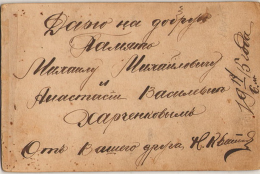 Дарю на добрую
Память
Михаилу Михайловичу
и
Анастасии Васильевне
Харченковым
От Вашего друга Н.
1915 года